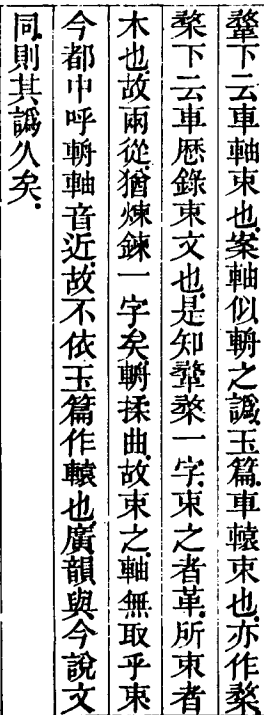 鞪下云車軸束也案軸似輈之譌玉篇車轅束也亦作楘
楘下云車歷錄束文也是知鞪楘一字束之者革所束者
木也故兩從猶煉鍊一字矣輈揉曲故束之軸無取乎束
今都中呼輈軸音近故不依玉篇作轅也廣韻與今說文
同則其譌久矣